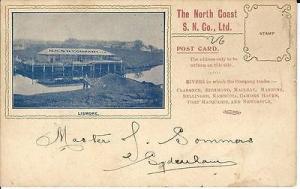 The North Coast
S. N. Co., Ltd.
POST CARD.
The address only to be
written on this side.
STAMP
RIVERS in which the Company trades:—
CLARENCE, RICHMOND, MACLEAY, MANNING,
BELLINGER, NAMBUCCA, CAMDEN HAVEN,
PORT MACQUARIE, AND NEWCASTLE.
LISMORE.
Master S. Pommers
Sydenham